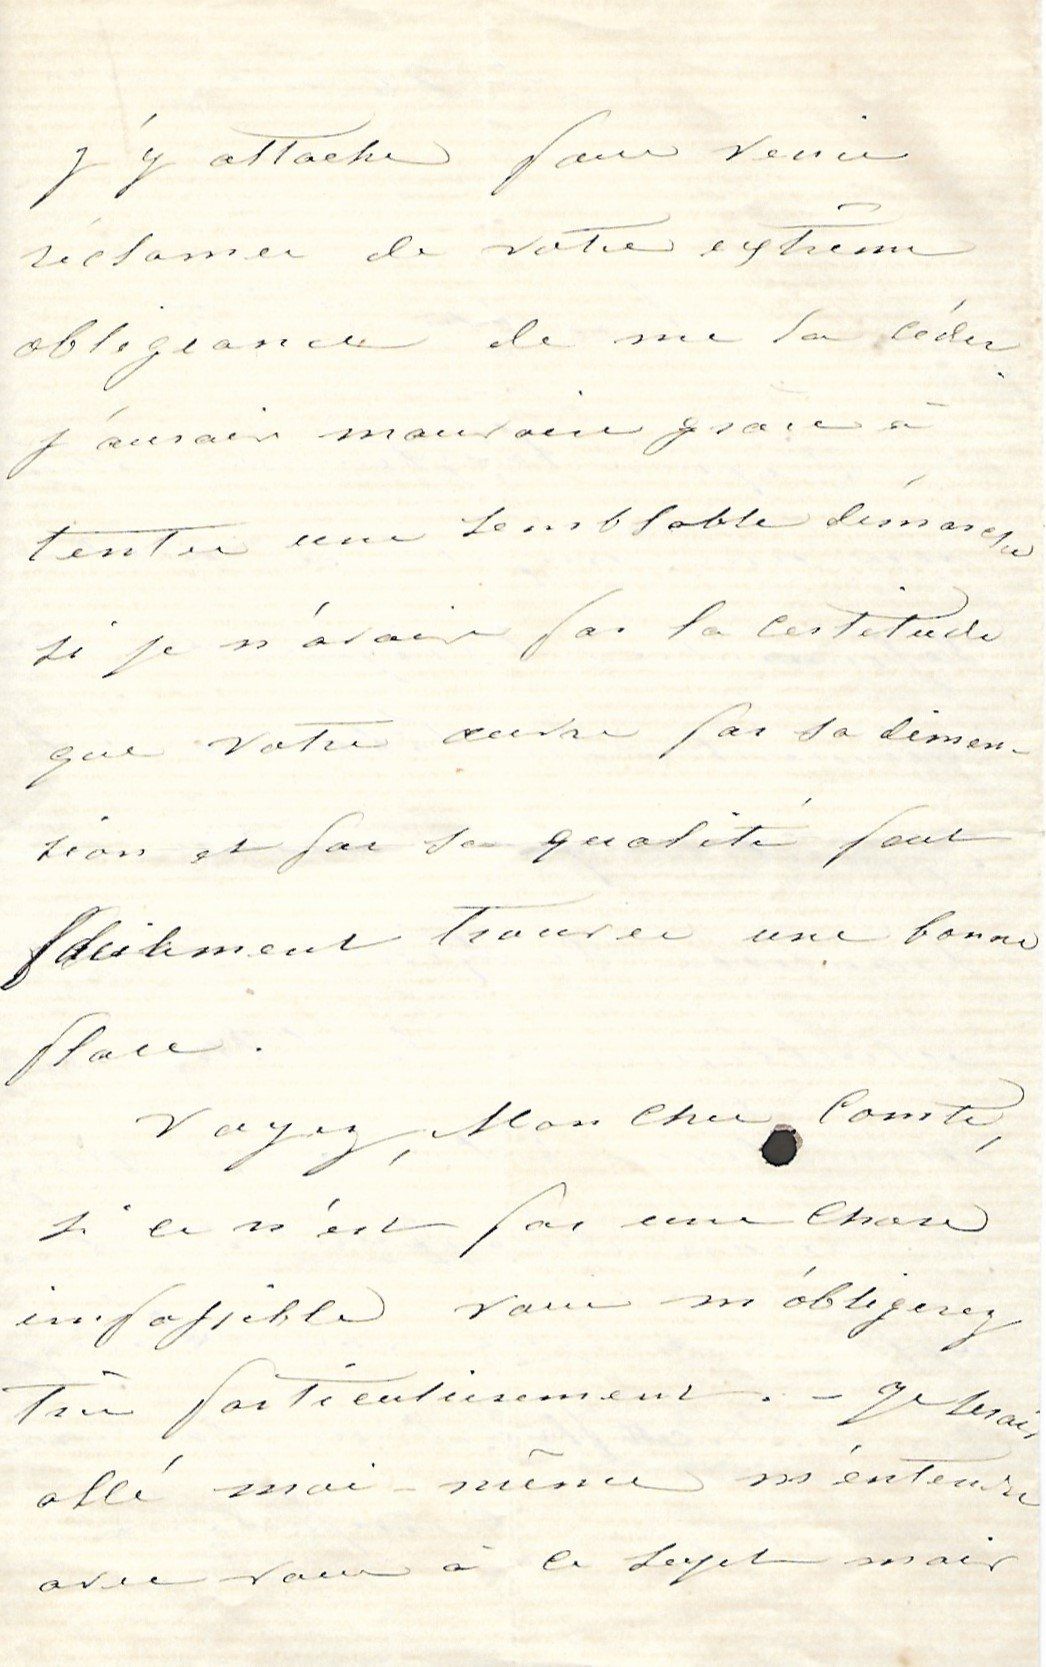 j'y attache pour venir
réclamer de votre extrême
obligeance de me la céder.
j'aurais mauvaise grâce à
tenter une semblable démarche
si je n'avais pas la certitude
que votre œuvre par sa dimen-
sion et par sa qualité peut
facilement trouver une bonne
place.
Voyez, Mon cher Comte,
si ce n'est pas une chose
impossible vous m'obligerez
très particulièrement. - Je serais
allé moi-même m'entendre
avec vous à ce sujet mais